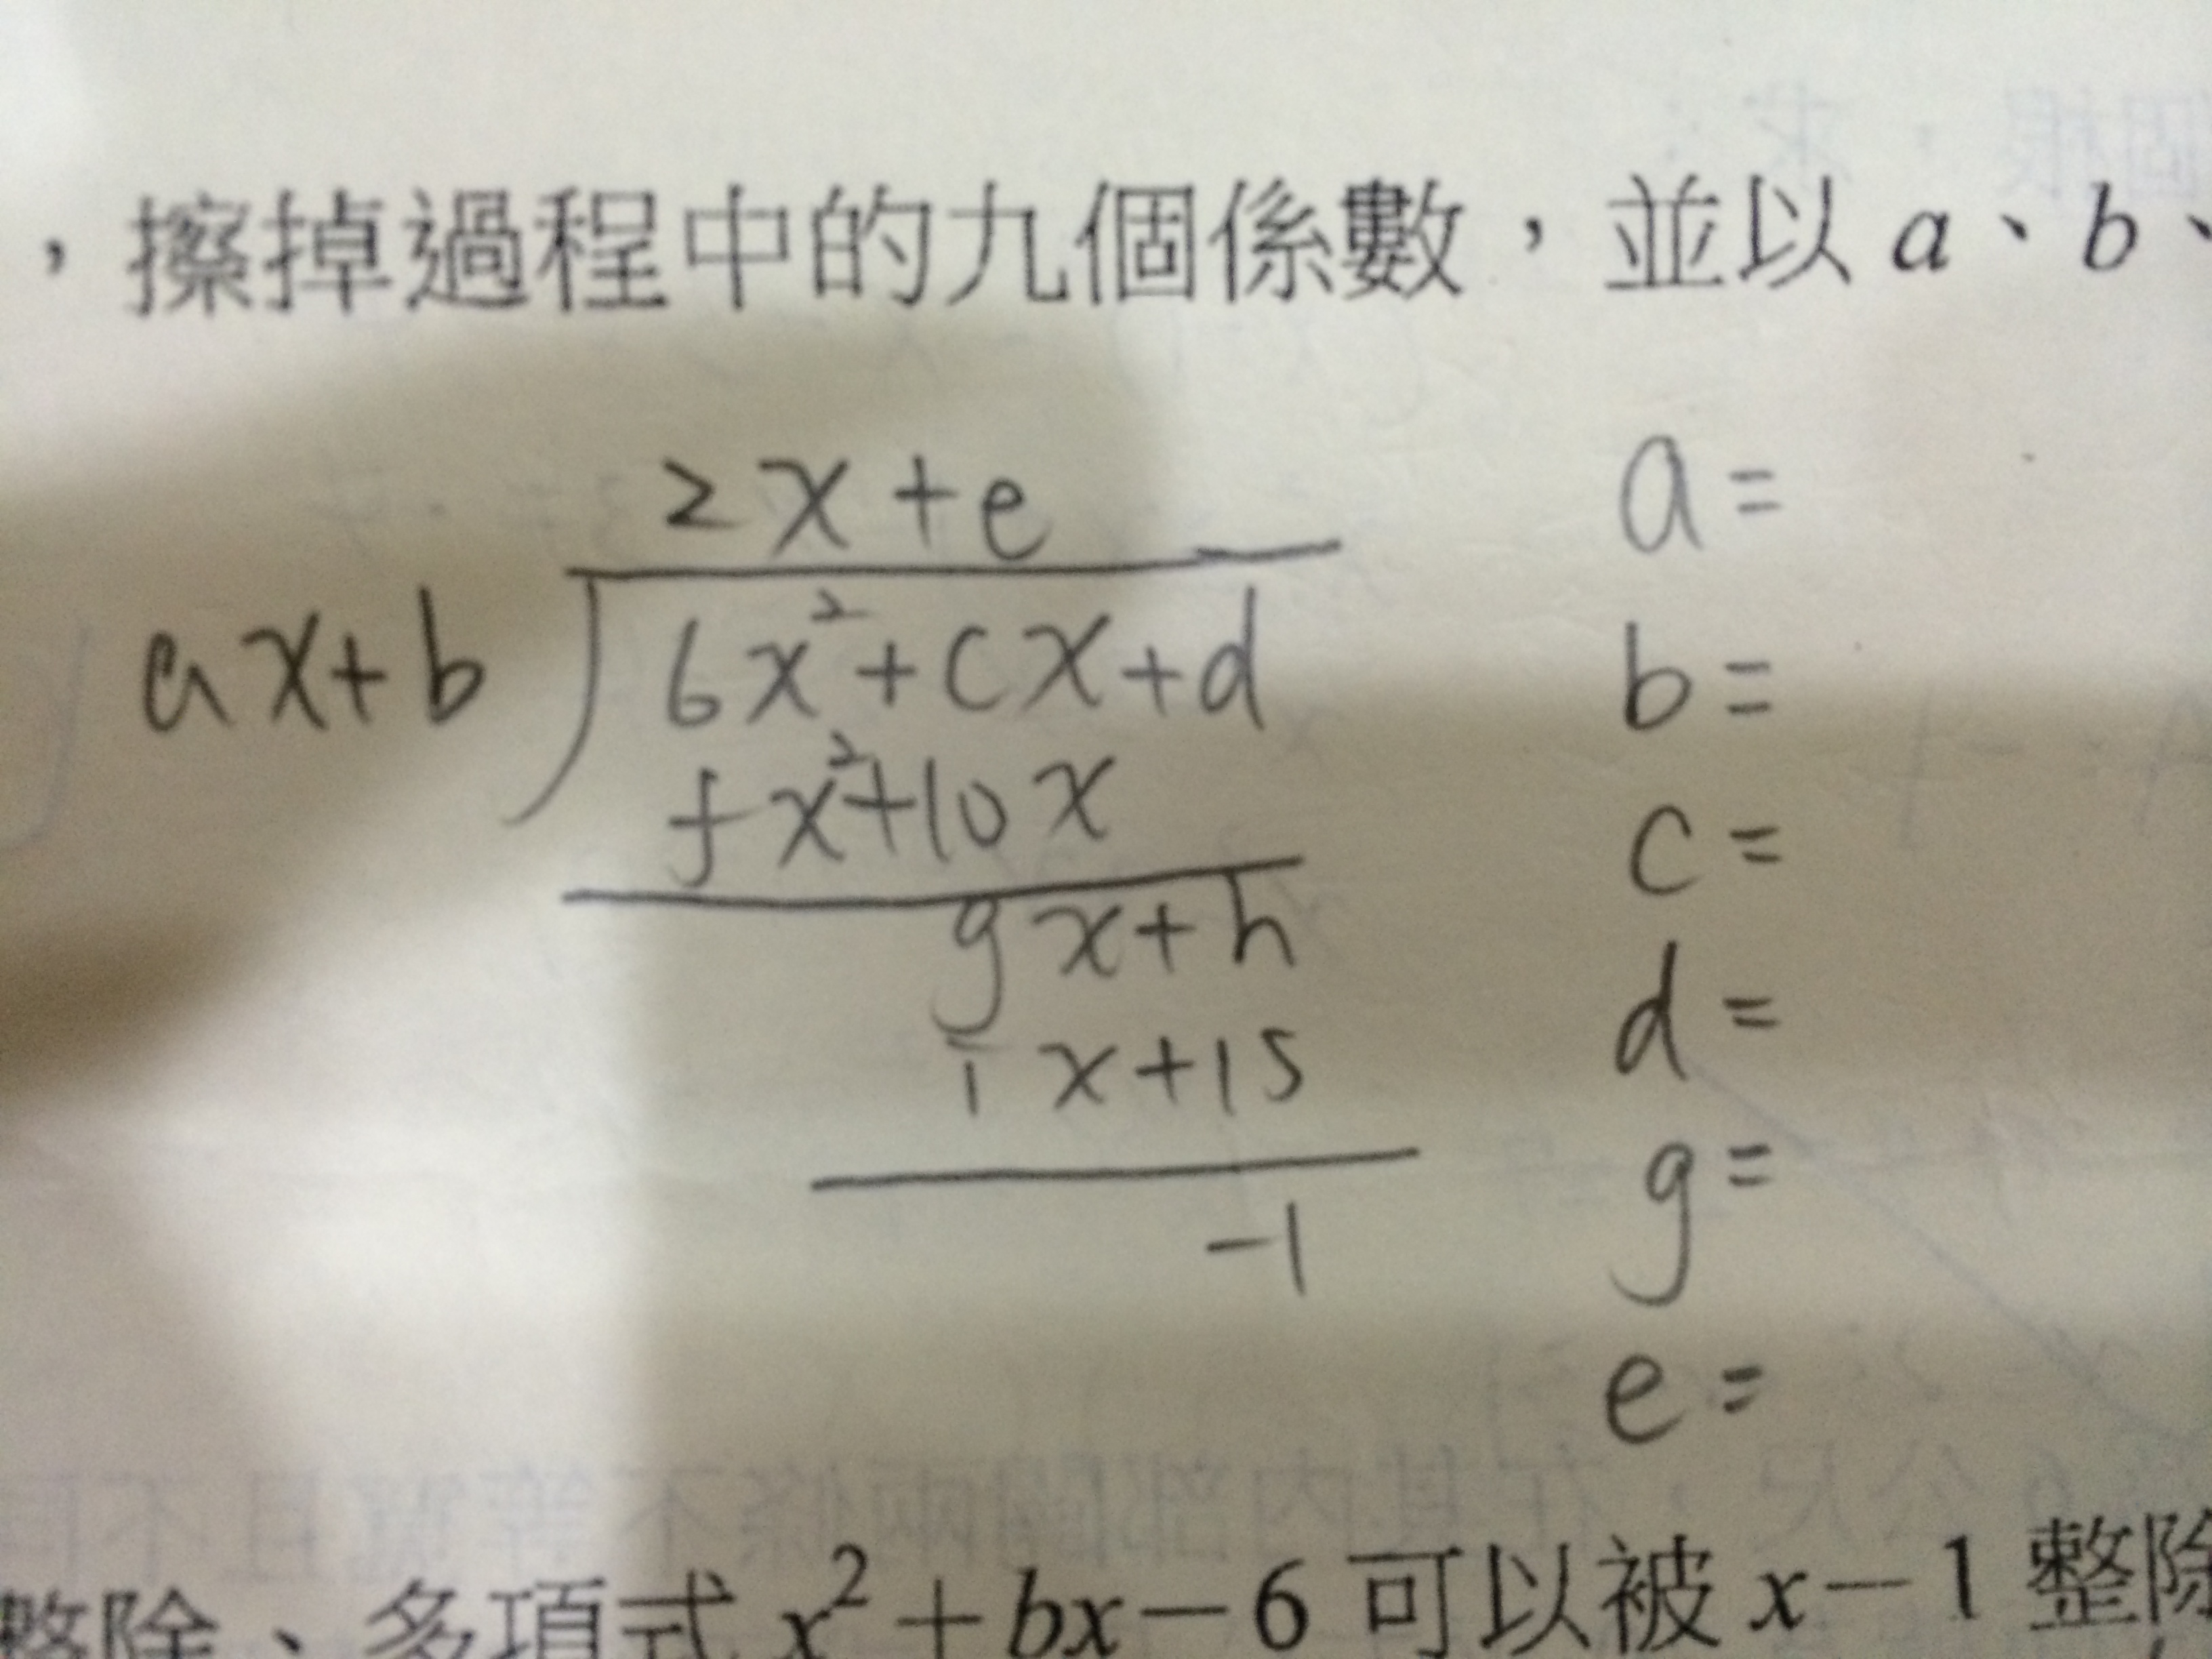 ，擦掉過程中的九個係數，並以 a、b、
2x+e
ax+b
6x²+cx+d
fx²+10x
gx+h
ix+15
-1
a=
b=
c=
d=
g=
e=
整除、多項式 x²+bx-6 可以被 x-1 整除